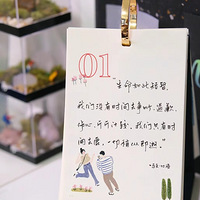 01
"生命如此短暂,
我们没有时间去争吵、道歉、
伤心、斤斤计较, 我们只有时
间去爱, 一切稍纵即逝。"